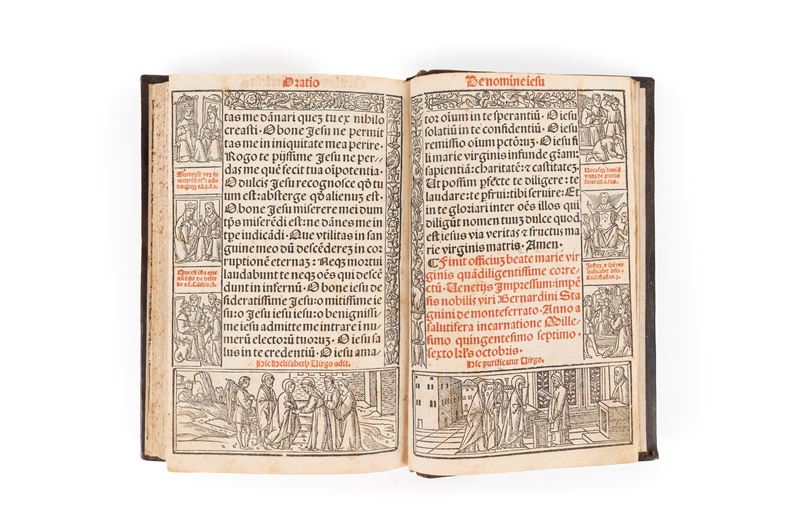 Oratio
tas me dānari quez tu ex nihilo
creasti · O bone Jesu ne permit
tas me in iniquitate mea perire.
Rogo te pijssime Jesu ne per⸗
das me que fecit tua oīpotentia·
O dulcis Jesu recognosce qd tu
um est: absterge qd alienuz est·
O bone Jesu miserere mei dum
tps miserēdi est: ne dānes me in
tpe iudicādi · Que vtilitas in san
guine meo dum descēderez in cor
ruptionē eternaz: Neqz mortui
laudabunt te neqz oēs qui descē
dunt in infernū· O bone iesu de
sideratissime Jesu: o mitissime ie
su: o Jesu iesu iesu: o benignissi⸗
me iesu admitte me intrare ī nu⸗
merū electorū tuoruz· O iesu sa
lus in te credentiū· O iesu ama⸗
Hic Helisabeth Virgo adit.
De nomine iesu
tor oīum in te sperantiū· O iesu
solatiū in te confidentiū· O iesu
remissio oium pctōruz· O iesu fi
li marie virginis infunde gřam:
sapientiā: charitatē: & castitatez·
Ut possim pfecte te diligere: te
laudare: te pfrui: tibi seruire: Et
in te gloriari inter oēs illos qui
diligūt nomen tuuz dulce quod
est iesus via veritas & fructus ma
rie virginis matris· Amen·
¶ Finit officiuz beate marie vir
ginis quādiligentissime corre⸗
ctū· Venetijs Impressum: impē
sis nobilis viri Bernardini Sta
gnini de monteferrato· Anno a
salutifera incarnatione Mille⸗
simo quingentesimo septimo·
sexto kl's octobris·
Hic purificatur Virgo.